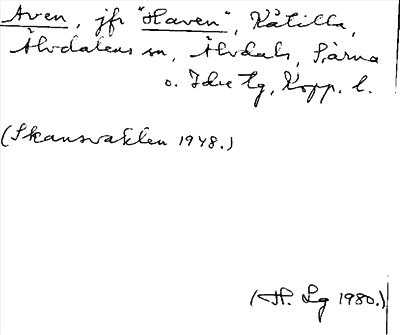 Aven, jfr "Haven", Kåtilla,
Älvdalens sn, Älvdals, Särna
o. Idre tg, Kopp. l.
(Skansvakten 1948.)
(H. Lg 1980.)